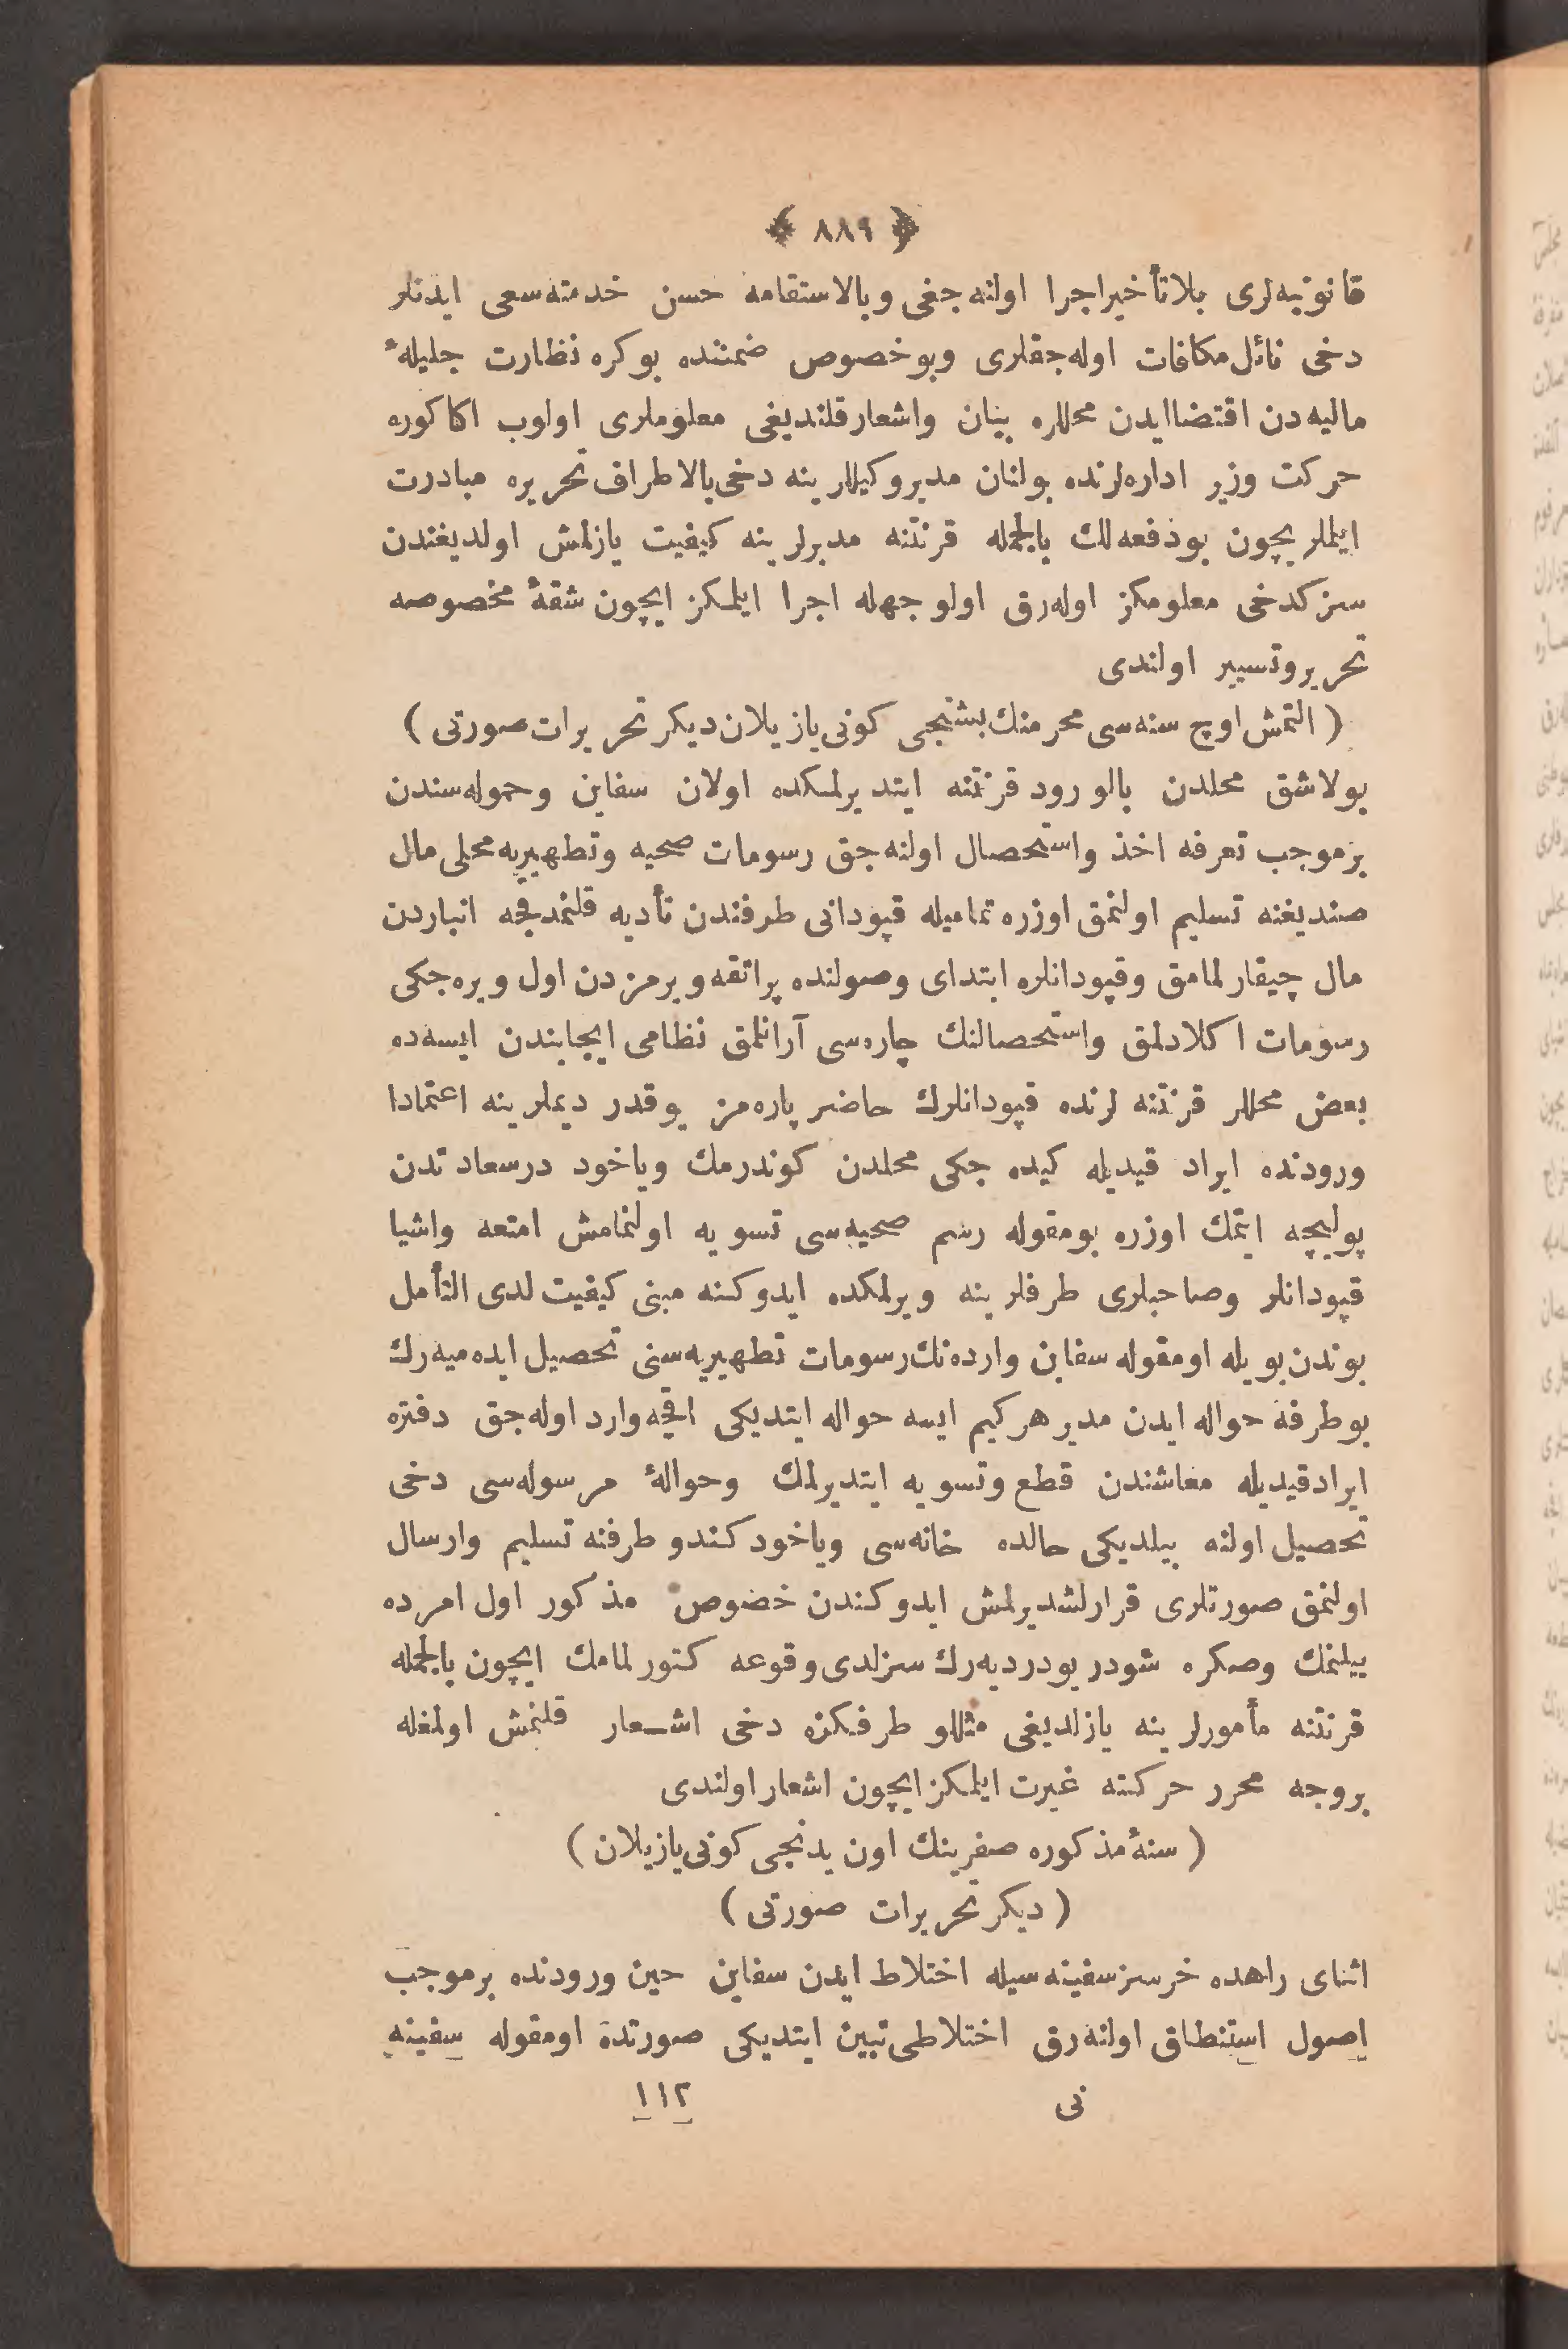 ﴿ ٨٨٩ ﴾
قانونیه‌لری بلاتأخیر اجرا اولنه‌جغی وبالاستقامه حسن خدمته سعی ایدنلر
دخی نائل مكافات اوله‌جقلری وبوخصوص ضمننده بوكره نظارت جلیلهٔ
مالیه‌دن اقتضا ایدن محللره بیان واشعار قلندیغی معلوملری اولوب اكا كوره
حركت وزیر اداره‌لرنده بولنان مدیر وكیللرینه دخی بالاطراف تحریره مبادرت
ایللریچون بودفعه‌لك بالجمله قرنتنه مدیرلرینه كیفیت یازلمش اولدیغندن
سزكدخی معلومكز اوله‌رق اولوجهله اجرا ایلمكز ایچون شقهٔ مخصوصه
تحریر وتسییر اولندی
( التمش اوچ سنه‌سی محرمنك بشنجی كونی یازیلان دیكر تحریرات صورتی )
بولاشق محلدن بالورود قرنتنه ایتدیرلمكده اولان سفاین وحموله‌سندن
برموجب تعرفه اخذ واستحصال اولنه‌جق رسومات صحیه وتطهیریه محلی مال
صندیغنه تسلیم اولنمق اوزره تمامیله قپودانی طرفندن تأدیه قلنمدقجه انباردن
مال چیقارلمامق وقپودانلره ابتدای وصولنده پراتقه ویرمزدن اول ویره‌جكی
رسومات اكلادلمق واستحصالنك چاره‌سی آرانلمق نظامی ایجابندن ایسه‌ده
بعض محللر قرنتنه لرنده قپودانلرك حاضر پاره‌مز یوقدر دیملرینه اعتمادا
ورودنده ایراد قیدیله كیده جكی محلدن كوندرمك ویاخود درسعادتدن
پولیچه ایتمك اوزره بومقوله رسم صحیه‌سی تسویه اولنمامش امتعه واشیا
قپودانلر وصاحبلری طرفلرینه ویرلمكده ایدوكنه مبنی كیفیت لدی التأمل
بوندن بویله اومقوله سفاین وارده‌نك رسومات تطهیریه‌سنی تحصیل ایده‌میه‌رك
بوطرفه حواله ایدن مدیر هركیم ایسه حواله ایتدیكی اقچه وارد اوله‌جق دفتره
ایراد قیدیله معاشندن قطع وتسویه ایتدیرلمك وحوالهٔ مرسوله‌سی دخی
تحصیل اولنه بیلدیكی حالده خانه‌سی ویاخود كندو طرفنه تسلیم وارسال
اولنمق صورتلری قرارلشدیرلمش ایدوكندن خصوص مذكور اول امرده
بیلنمك وصكره شودر بودر دیه‌رك سزلدی وقوعه كتورلمامك ایچون بالجمله
قرنتنه مأمورلرینه یازلدیغی مثللو طرفكزه دخی اشعار قلنمش اولمغله
بروجه محرر حركته غیرت ایلمكز ایچون اشعار اولندی
( سنهٔ مذكوره صفرینك اون یدنجی كونی یازیلان )
( دیكر تحریرات صورتی )
اثنای راهده خرسز سفینه سیله اختلاط ایدن سفاین حین ورودنده برموجب
اصول استنطاق اولنه‌رق اختلاطی تبین ایتدیكی صورتده اومقوله سفینه
نی ١١٢